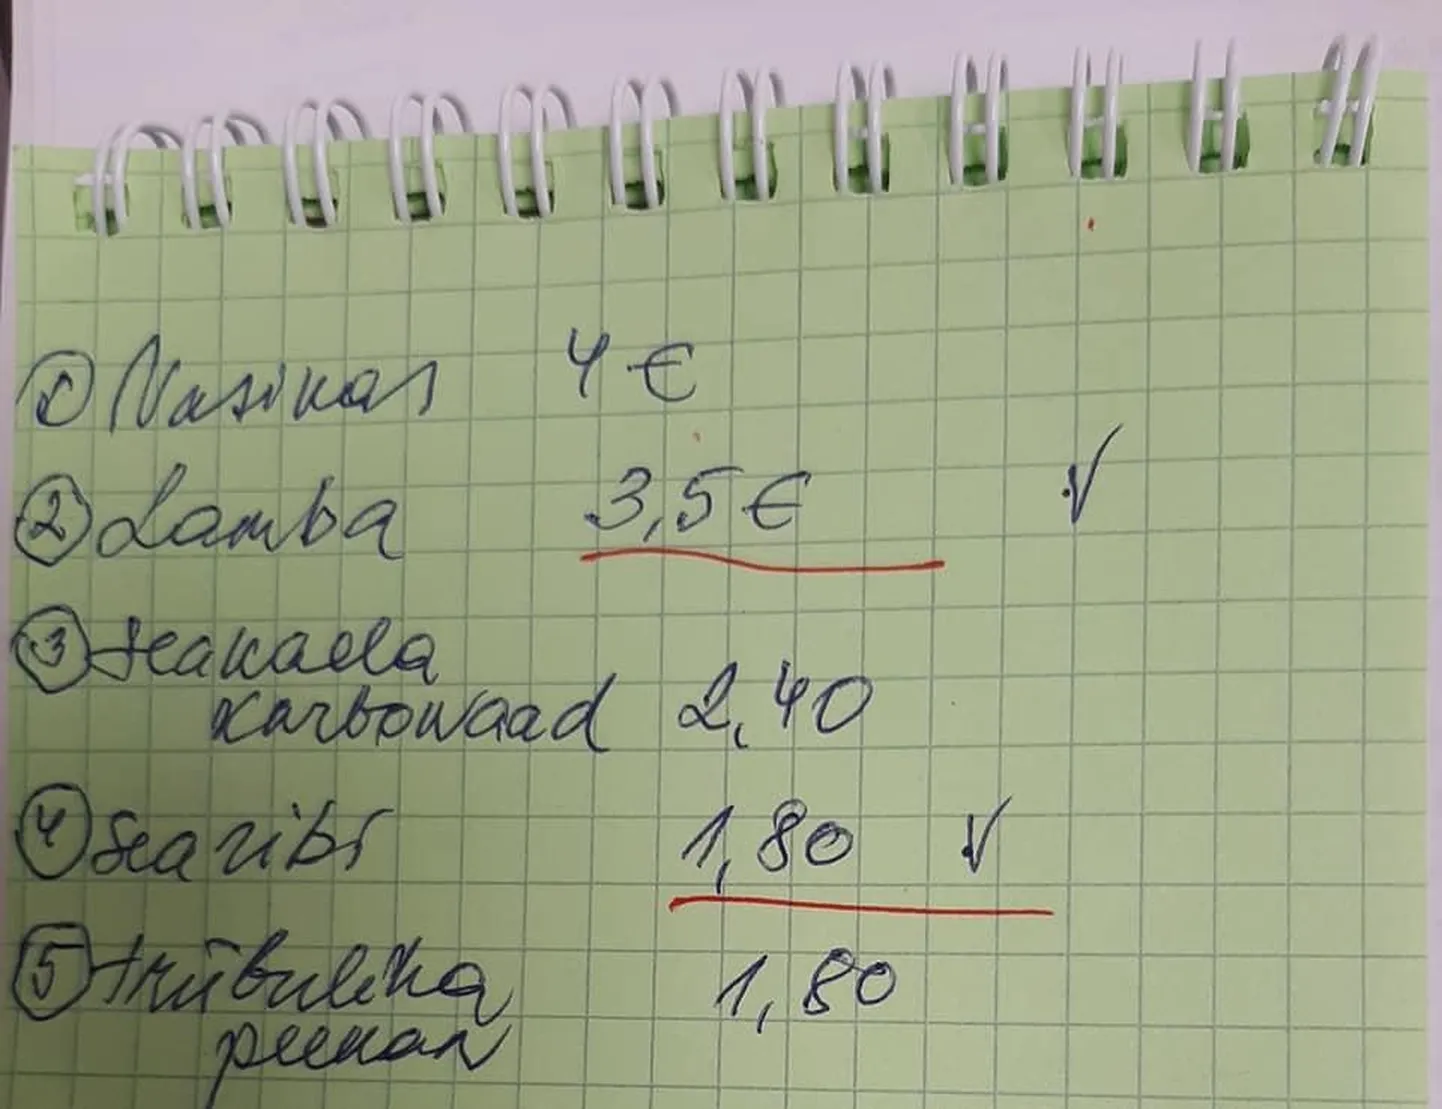 ① Vasikas 4 €
② Lamba 3,5 € √
③ Seakaela
karbonaad 2,40
④ Searibi 1,80 √
⑤ 1,80
peekon